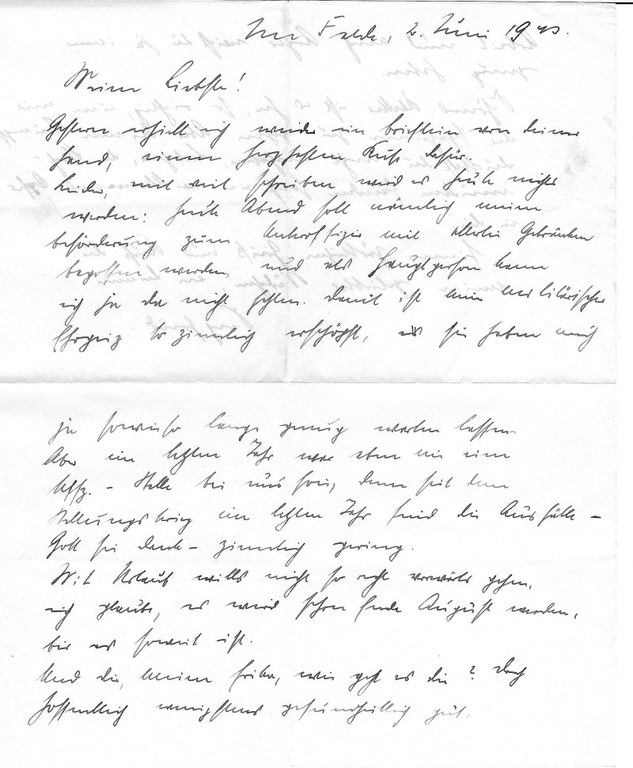 Im Felde, 2. Juni 1943.
Meine Liebste!
Gestern erhielt ich wieder ein Brieflein von deiner
Hand, einen herzhaften Kuß dafür.
Leider, mit viel schreiben wird es heute nichts
werden: heute Abend soll nämlich meine
Beförderung zum Unteroffizier mit allerlei Getränken
begossen werden und als Hauptperson kann
ich ja da nicht fehlen. Damit ist mein militärischer
Ehrgeiz so ziemlich erschöpft, sie haben mich
ja sowieso lange genug warten lassen.
Aber im letzten Jahr war eben nie eine
Uffz. - Stelle bei uns frei, denn seit dem
Stellungskrieg im letzten Jahr sind die Ausfälle -
Gott sei dank - ziemlich gering.
Mit Urlaub wills nicht so recht vorwärts gehen,
ich glaube, es wird schon Ende August werden,
bis es soweit ist.
Und du, meine liebe, wie geht es dir? Doch
hoffentlich wenigstens gesundheitlich gut.